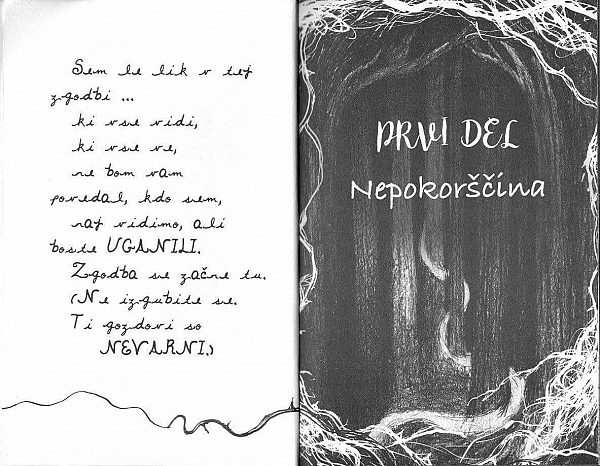 Sem le lik v tej
zgodbi ...
ki vse vidi,
ki vse ve,
ne bom vam
povedal, kdo sem,
naj vidimo, ali
boste UGANILI.
Zgodba se začne tu.
(Ne izgubite se.
Ti gozdovi so
NEVARNI.)
PRVI DEL
Nepokorščina